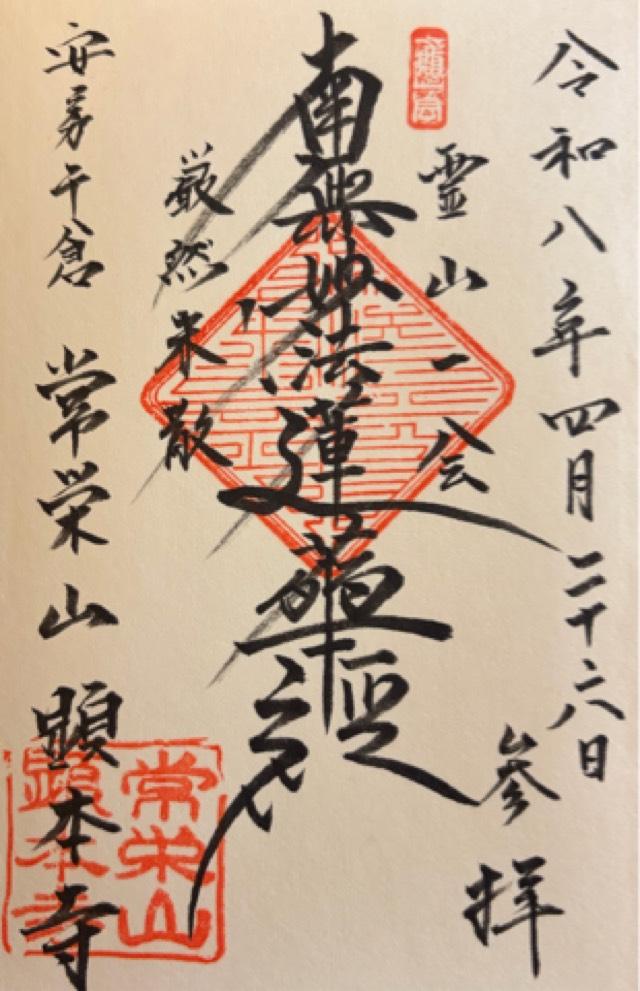 令和八年四月二十六日
参拝
霊山一会
南無妙法蓮華経
厳然未散
安房千倉 常栄山 顕本寺
常栄山
顕本寺